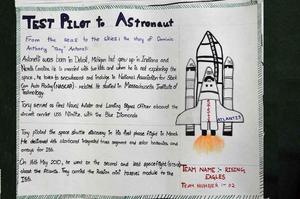 TEST PILOT to Astronaut
From the seas to the skies: the story of Dominic
Anthony "Tony" Antonelli
Antonelli was born in Detroit, Michigan but grew up in Indiana and
North Carolina. He is married with two kids and when he is not exploring the
space, he loves to snowboard and indulge in National Association for Stock
Car Auto Racing (NASCAR). related He studied in Massachusetts Institute of
Technology.
Tony served as Naval Aviator and Landing Signal Officer aboard the
aircraft carrier USS Nimitz, with the Blue Diamonds
Tony piloted the space shuttle discovery in his first space flight in March.
He delivered 4th starboard integrated truss segment and solar batteries and
arrays for ISS.
On 14th May 2010, he went on the second and last space flight
aboard the Atlantis. Tony carried the Russian mini research module to the
ISS.
ATLANTIS
TEAM NAME:- RISING
EAGLES
TEAM NUMBER :- 02